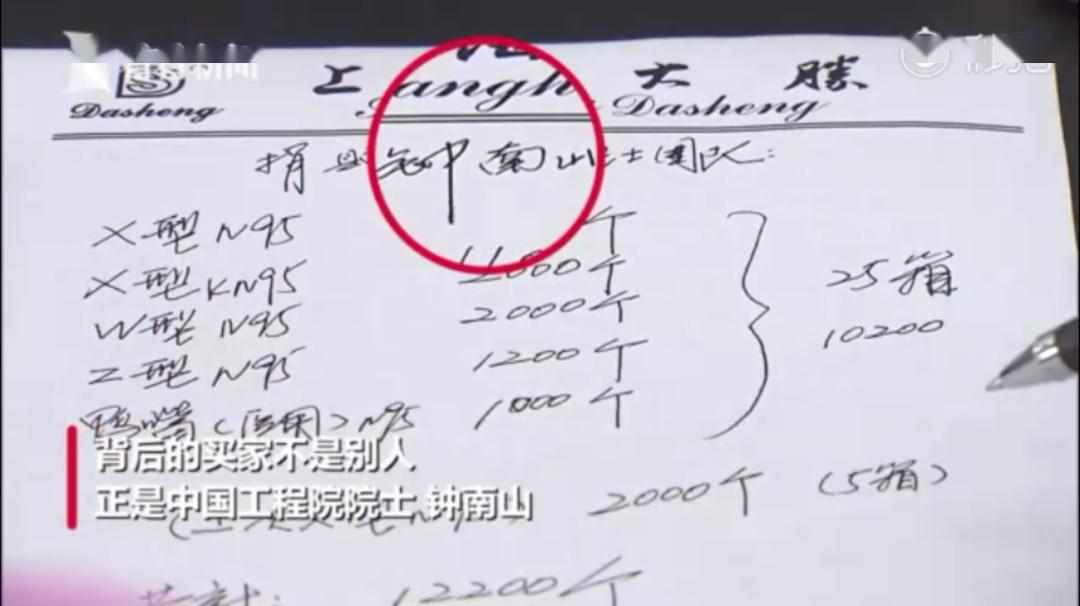 看看新闻
上海大勝
Dasheng Shanghai Dasheng
捐 钟南山院士团队:
X型 N95 个
X型 KN95 个
W型 N95 2000个
Z型 N95 1200个 25箱
鸭嘴(医用)N95 1000个 10200
背后的买家不是别人
正是中国工程院院士 钟南山
2000个 (5箱)
共计: 12200个